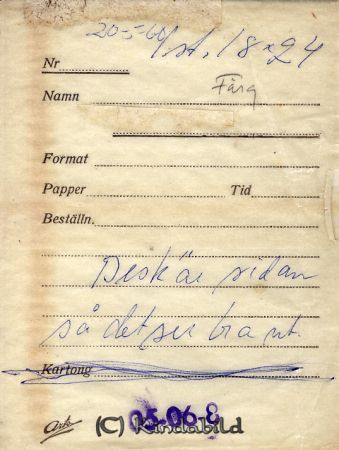 20-5-60
1 st. 18 x 24
Nr
Namn Färg
Format
Papper Tid
Beställn.
Beskär sidan
så det ser bra ut.
Kartong
05-06-8
(C) Kindabild